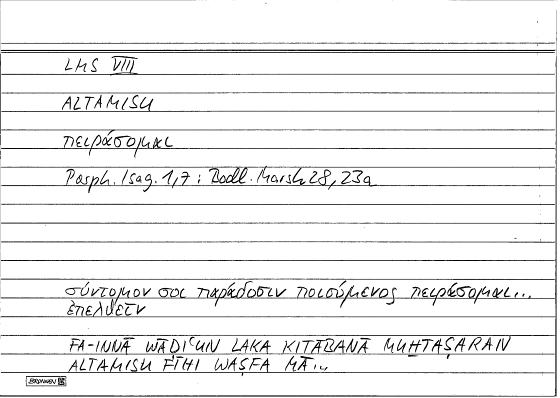 LMS VIII
ALTAMISU
πειράσομαι
Porph. Isag. 1,7 : Bodl. Marsh 28, 23a
σύντομόν σοι παράδοσιν ποιούμενος πειράσομαι...
ἐπελθεῖν
FA-INNĀ WĀDIʿUN LAKA KITĀBANĀ MUḪTAṢARAN
ALTAMISU FĪHI WAṢFA MĀ...
BRUNNEN